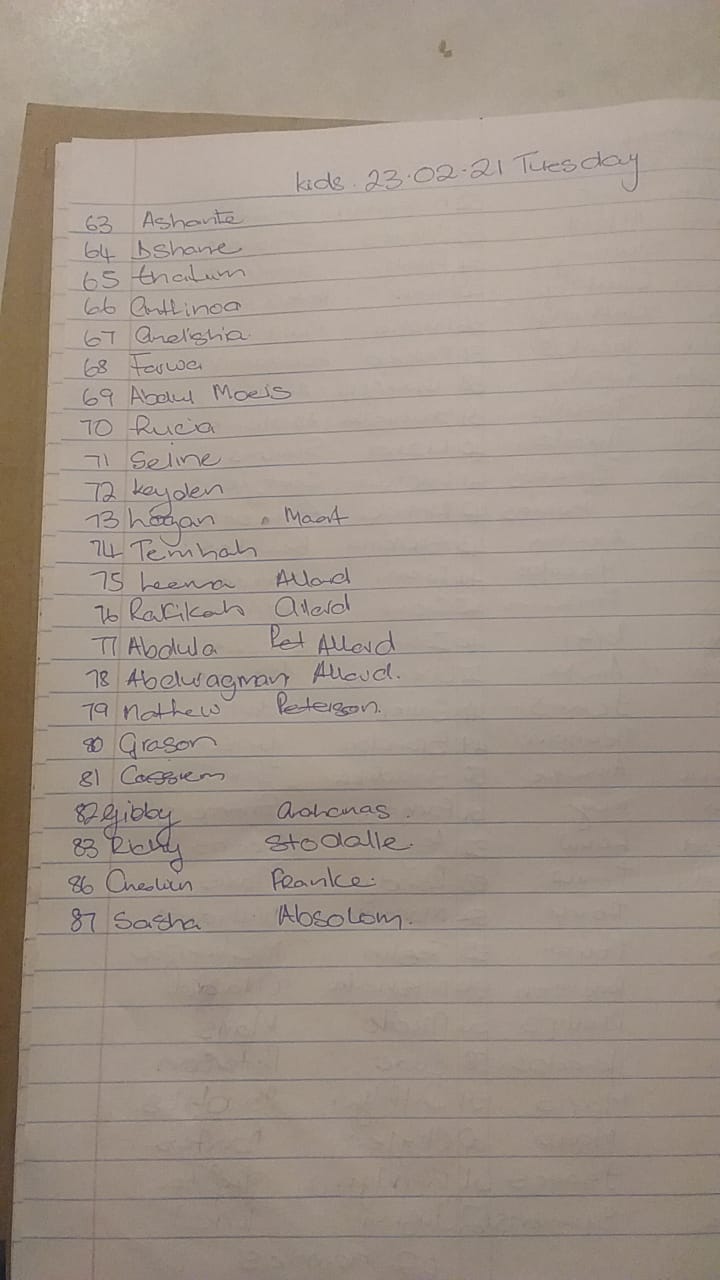 kids. 23.02.21 Tuesday
63 Ashante
64 Dshane
65 thalum
66 Anthinoa
67 Andishia.
68 Farwa
69 Abdul Moeis
70 Rucia
71 Seline
72 Keyden
73 Logan Maart
74 Temhah
75 Leema Allard
76 Rafikah Allard
77 Abdula Pet Allard
78 Abduragman Allard.
79 Mathew Peterson.
80 Grason
81 Cassiem
82 Gibby
83 Ricky Stodalle.
86 Cheslin Franke.
87 Sasha Absolom.